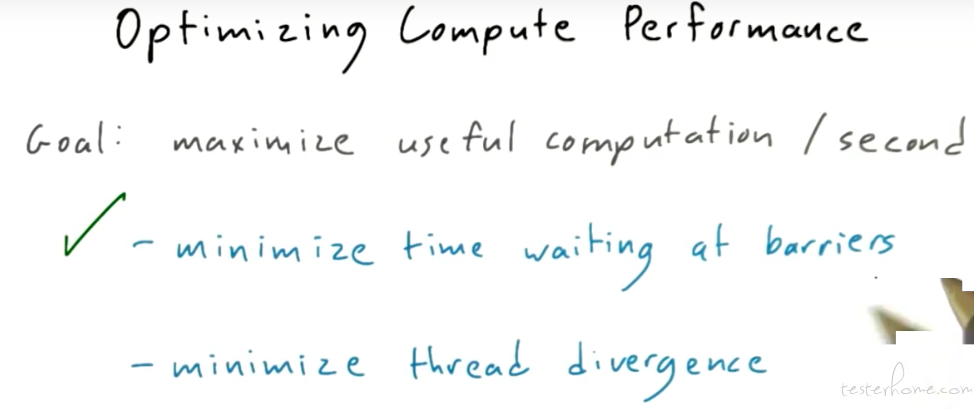 Optimizing Compute Performance
Goal: maximize useful computation / second
✓ - minimize time waiting at barriers
- minimize thread divergence
testerhome.com